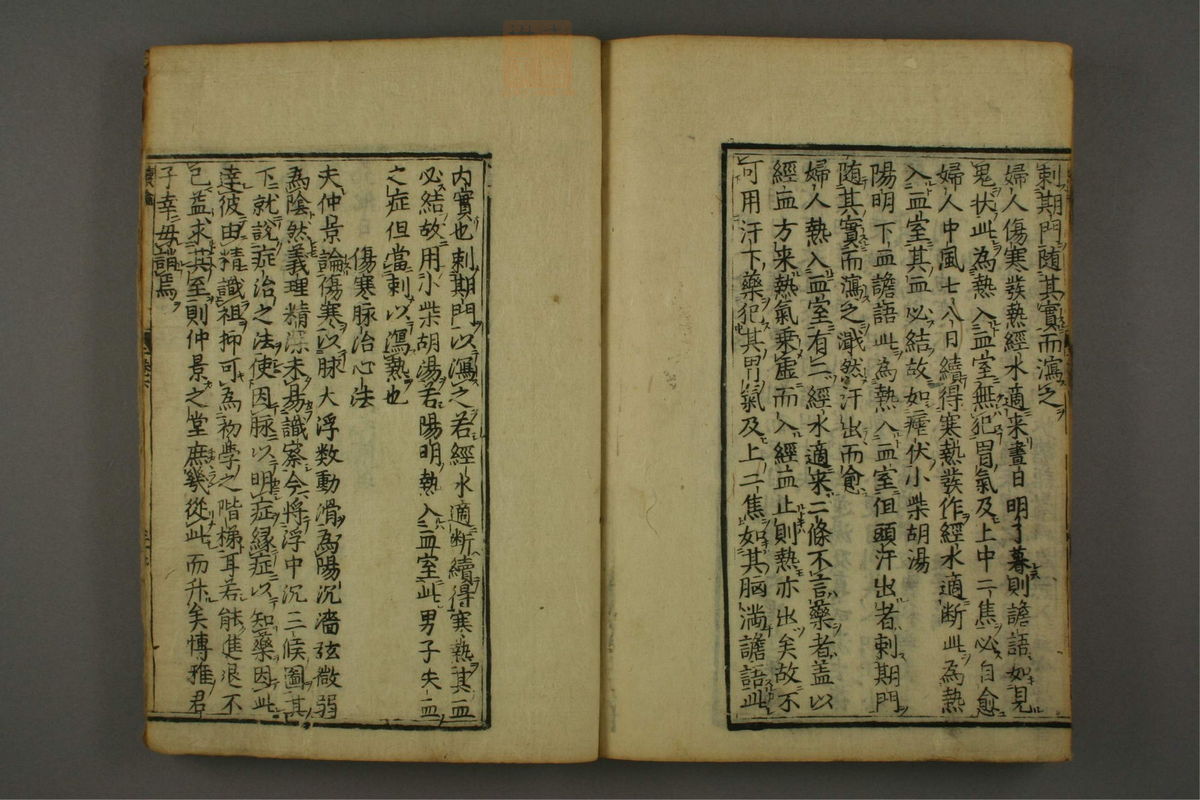 刺期門随其實而瀉之
婦人傷寒發熱經水適来晝日明了暮則譫語如見
鬼状此為熱入血室無犯胃氣及上中二焦必自愈
婦人中風七八日續得寒熱發作經水適断此為熱
入血室其血必結故如瘧伏小柴胡湯
陽明下血譫語此為熱入血室但頭汗出者刺期門
随其實而瀉之濈然汗出而愈
婦人熱入血室有二經水適来二條不言藥者盖以
經血方来熱氣乗虚而入經血止則熱亦出矣故不
可用汗下藥犯其胃氣及上二焦如其胸満譫語此
内實也刺期門以瀉之若經水適断續得寒熱其血
必結故用小柴胡湯若陽明熱入血室此男子失血
之症但當刺以瀉熱也
傷寒脉治心法
夫仲景論傷寒以脉大浮数動滑為陽沉濇弦微弱
為陰然義理精深未易識察今將浮中沉三候圖其
下就說症治之法使因脉以明症緣症以知藥因此
達彼由精識祖抑可為初學之階梯耳若能進退不
已益求其至則仲景之堂庶幾從此而升矣博雅君
子幸毋誚焉